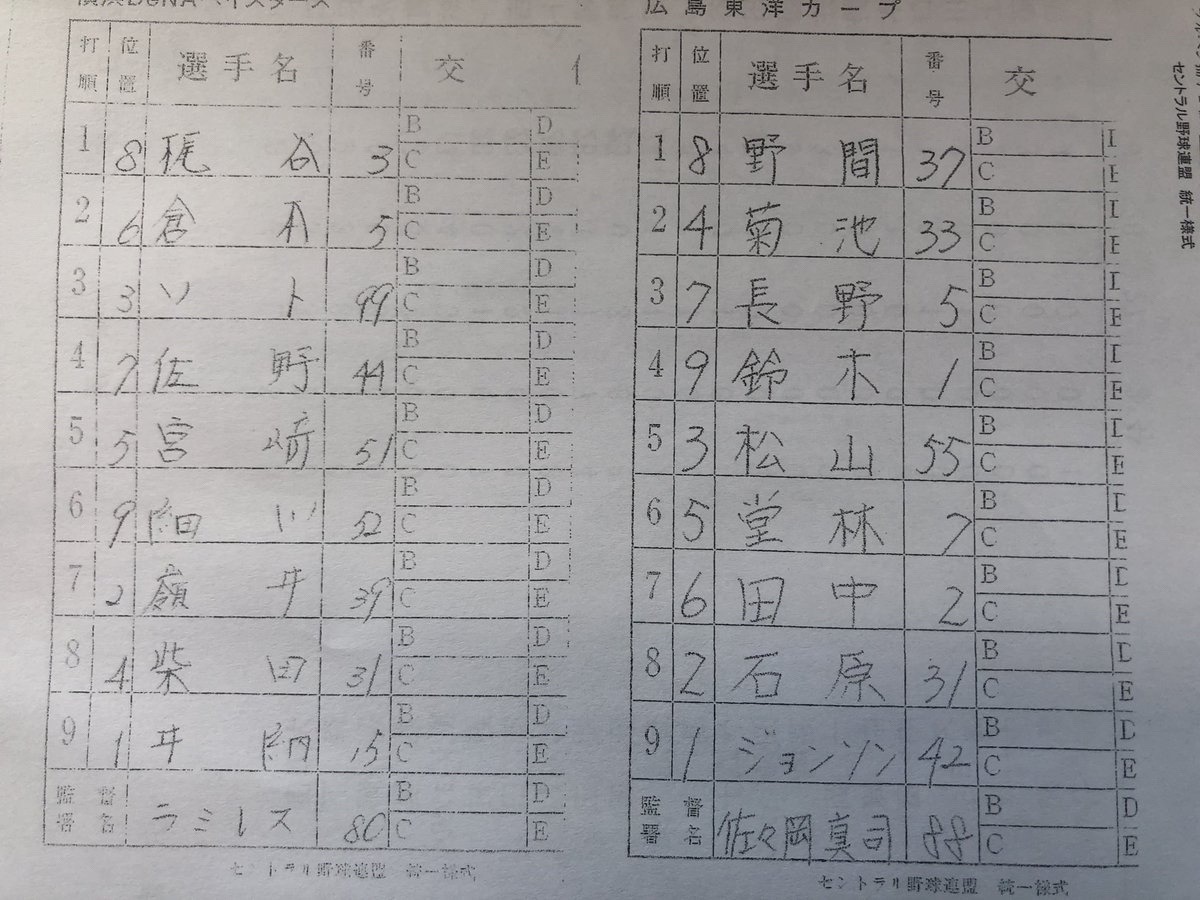 横浜DeNAベイスターズ
打順 位置 選手名 番号 交
1 8 梶谷 3 B C D E
2 6 倉本 5 B C D E
3 3 ソト 99 B C D E
4 7 佐野 44 B C D E
5 5 宮﨑 51 B C D E
6 9 細川 52 B C D E
7 2 嶺井 39 B C D E
8 4 柴田 31 B C D E
9 1 井納 15 B C D E
監督署名 ラミレス 80 B C D E
セントラル野球連盟 統一様式
広島東洋カープ
打順 位置 選手名 番号 交
1 8 野間 37 B C
2 4 菊池 33 B C
3 7 長野 5 B C E
4 9 鈴木 1 B C E
5 3 松山 55 B C E
6 5 堂林 7 B C D E
7 6 田中 2 B C D E
8 2 石原 31 B C D E
9 1 ジョンソン 42 B C D E
監督署名 佐々岡真司 88 B C D E
セントラル野球連盟 統一様式
セントラル野球連盟 統一様式